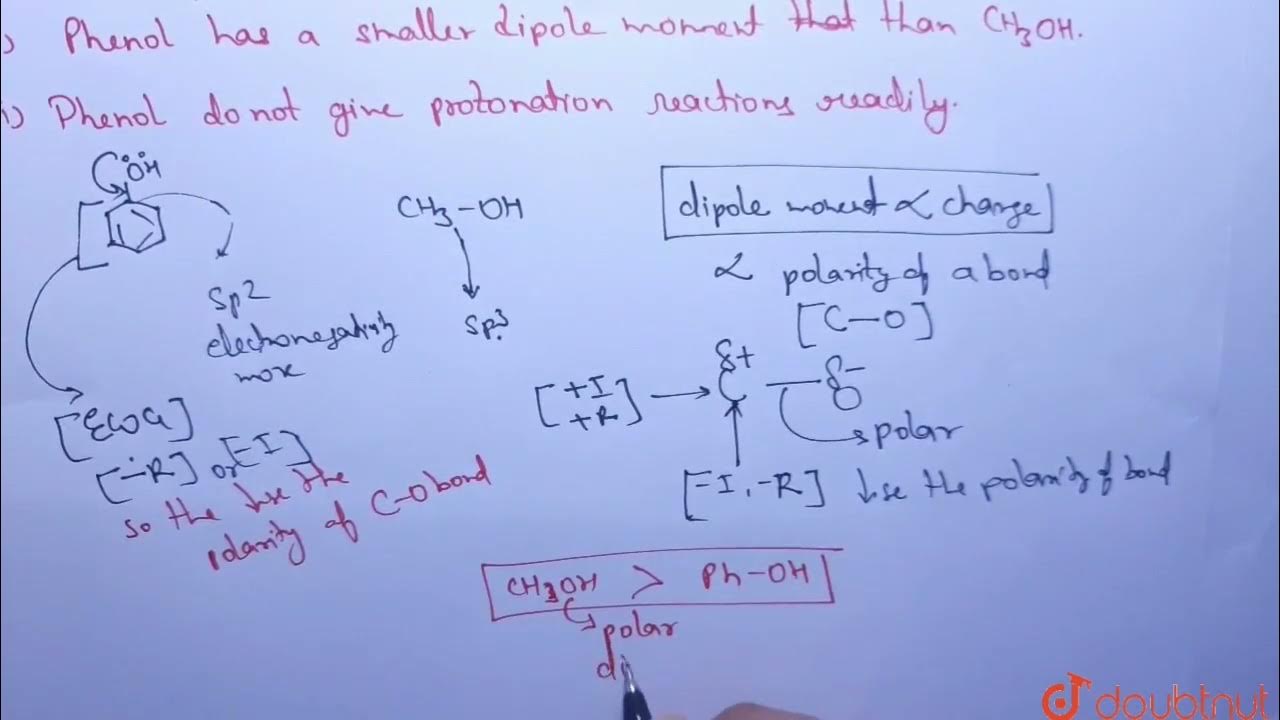 ) Phenol has a smaller dipole moment that than CH3OH.
i) Phenol do not give protonation reactions readily.
OH
CH3-OH
dipole moment ∝ charge
∝ polarity of a bond
[C-O]
Sp2
electronegativity
more
Sp3
δ+ δ-
[+I
+R] → C - O
polar
[EWG]
[-R] or [-I]
so the ↓se the
polarity of C-O bond
[-I, -R] ↓se the polarity of bond
CH3OH > Ph-OH
polar
di
doubtnut